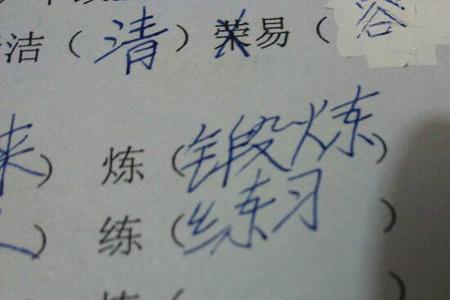 洁（清）荣易（容
来）炼（锻炼）
）练（练习）